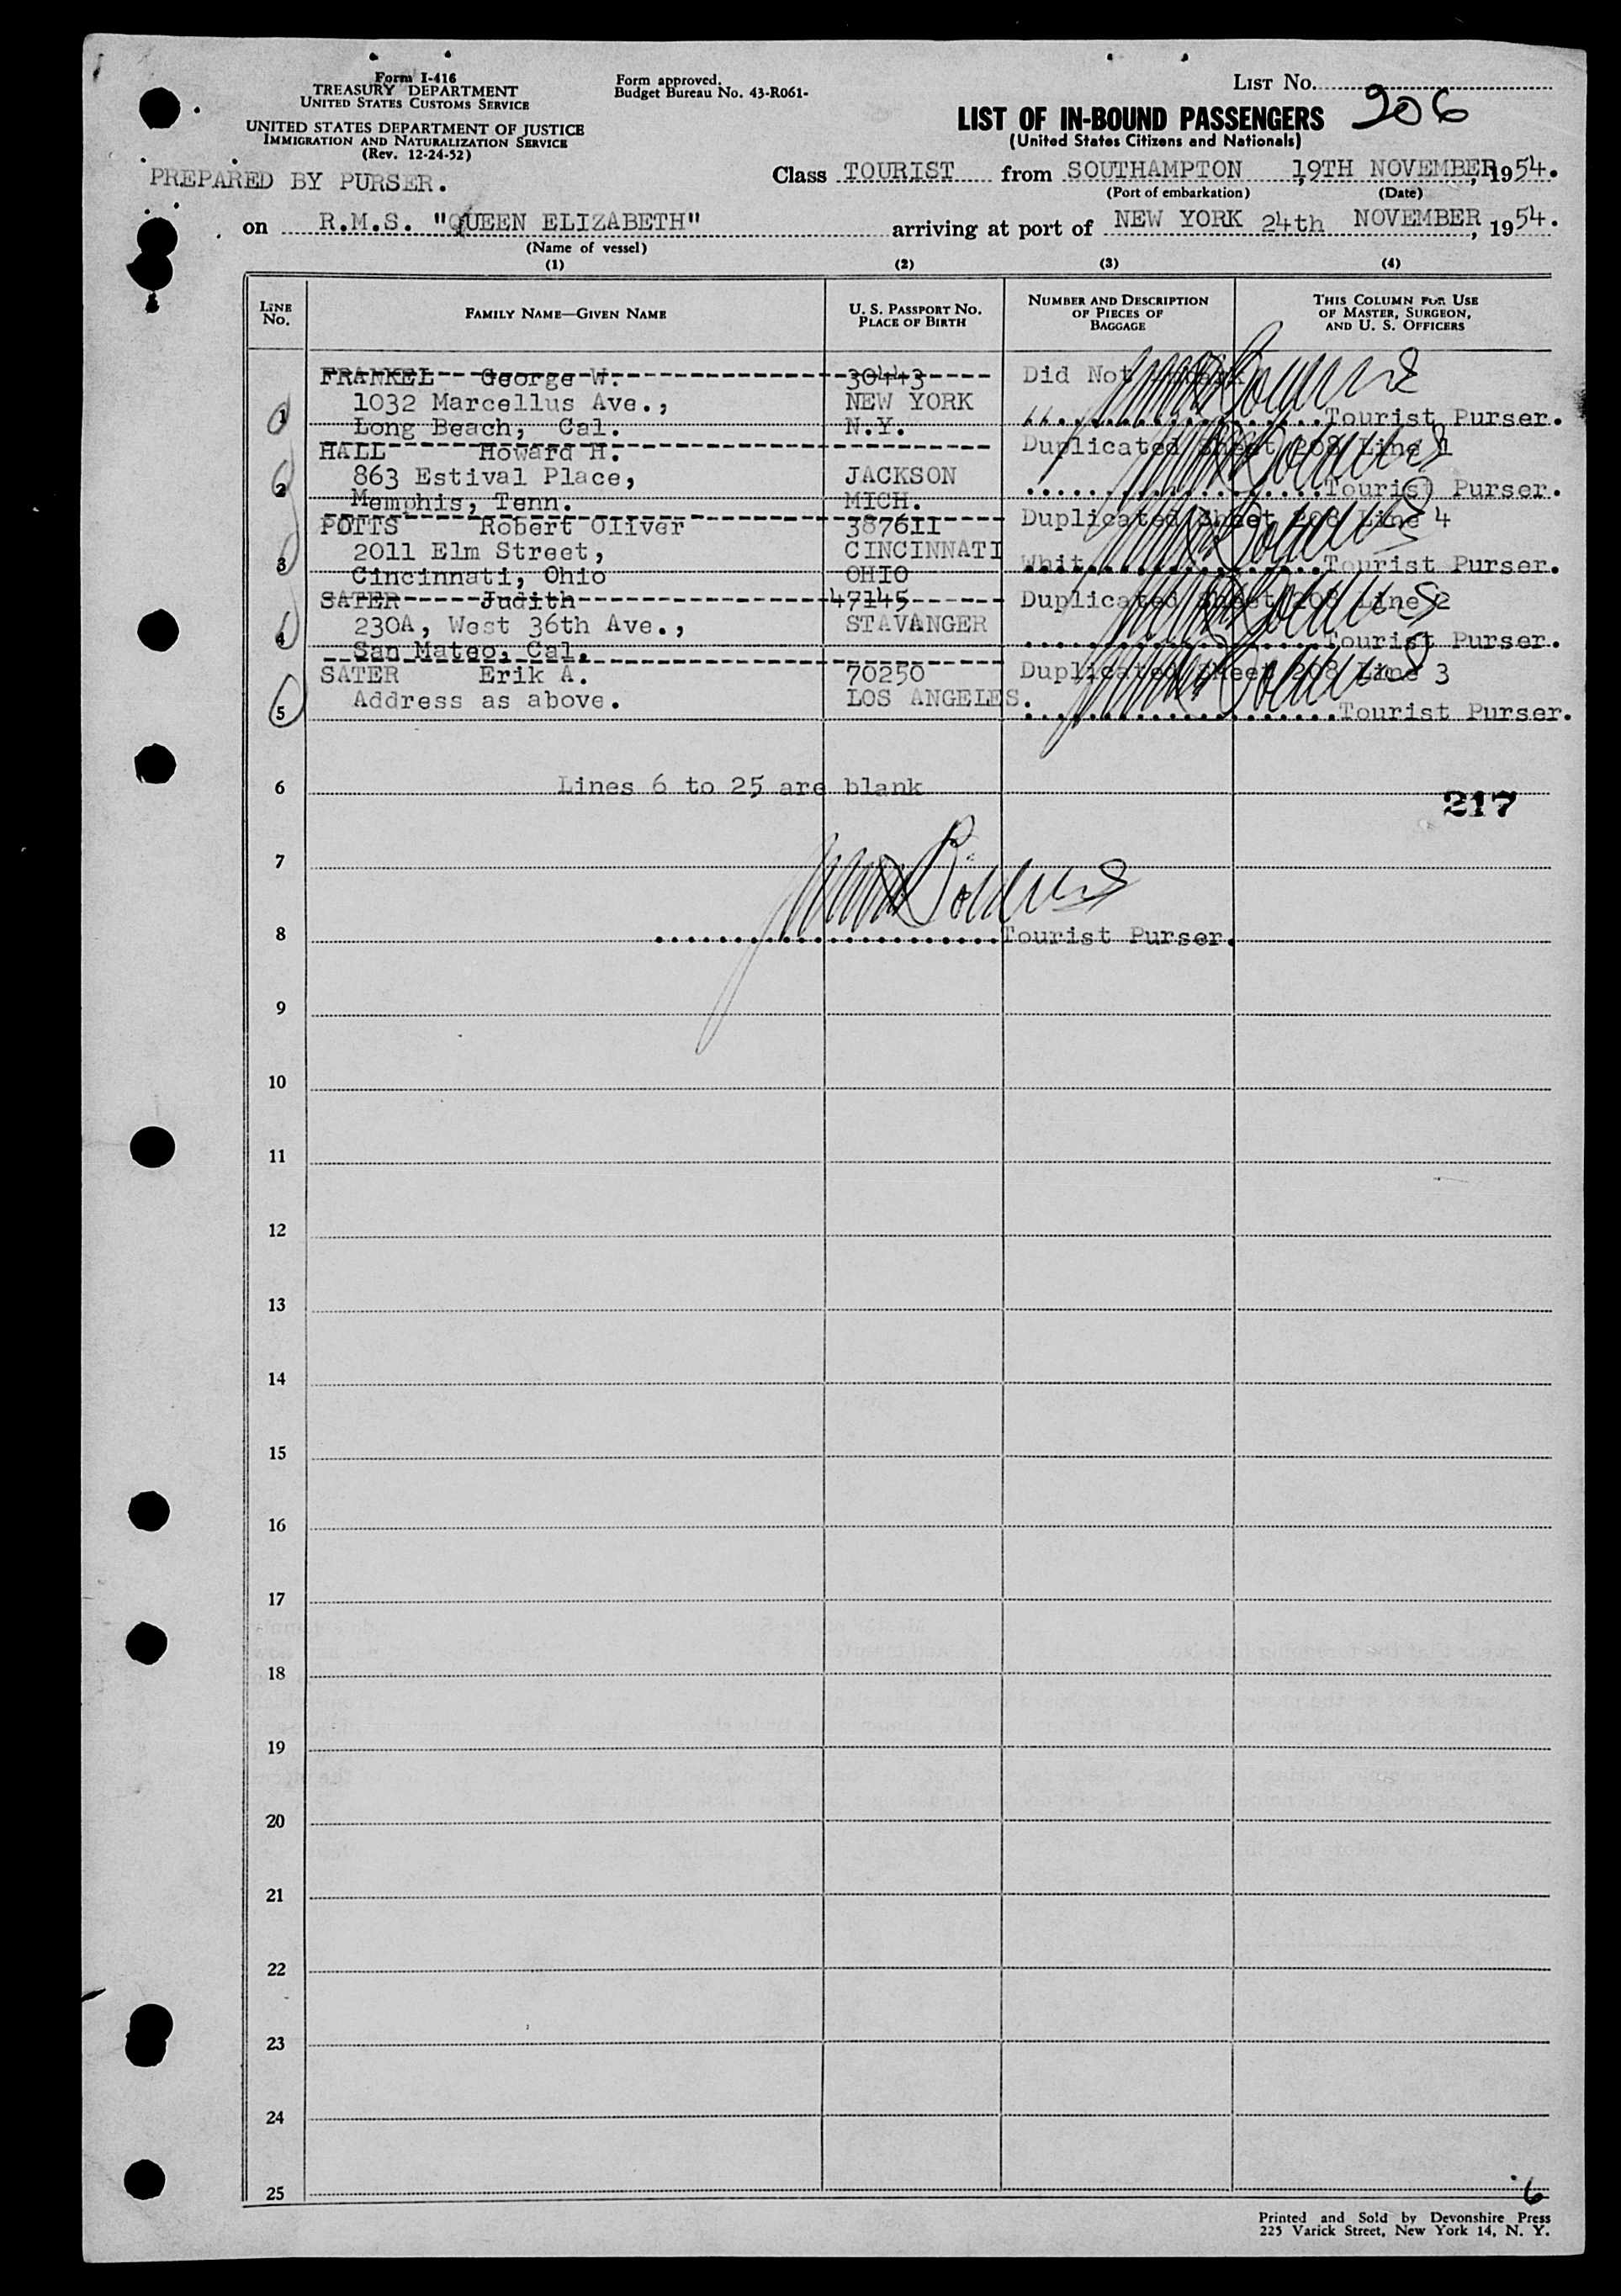 Form I-416
TREASURY DEPARTMENT
UNITED STATES CUSTOMS SERVICE
UNITED STATES DEPARTMENT OF JUSTICE
IMMIGRATION AND NATURALIZATION SERVICE
(Rev. 12-24-52)
Form approved.
Budget Bureau No. 43-R061-
LIST NO. 206
LIST OF IN-BOUND PASSENGERS
(United States Citizens and Nationals)
PREPARED BY PURSER.
Class TOURIST from SOUTHAMPTON 19TH NOVEMBER, 1954.
(Port of embarkation) (Date)
on R.M.S. "QUEEN ELIZABETH" arriving at port of NEW YORK 24th NOVEMBER, 1954.
(Name of vessel)
(1) (2) (3) (4)
LINE NO. FAMILY NAME—GIVEN NAME U. S. PASSPORT NO. PLACE OF BIRTH NUMBER AND DESCRIPTION OF PIECES OF BAGGAGE THIS COLUMN FOR USE OF MASTER, SURGEON, AND U. S. OFFICERS
FRANKEL George W. 30443 Did Not
1032 Marcellus Ave., NEW YORK
1 Long Beach, Cal. N.Y. Tourist Purser.
HALL Howard H. Duplicated Sheet 208 Line 1
863 Estival Place, JACKSON
2 Memphis, Tenn. MICH. Tourist Purser.
POTTS Robert Oliver 387611 Duplicated Sheet 208 Line 4
2011 Elm Street, CINCINNATI
3 Cincinnati, Ohio OHIO Whit Tourist Purser.
SATER Judith 47145 Duplicated Sheet 208 Line 2
230A, West 36th Ave., STAVANGER
4 San Mateo, Cal. Tourist Purser.
SATER Erik A. 70250 Duplicated Sheet 208 Line 3
Address as above. LOS ANGELES.
5 Tourist Purser.
6 Lines 6 to 25 are blank
217
7
8 Tourist Purser.
9
10
11
12
13
14
15
16
17
18
19
20
21
22
23
24
25
6
Printed and Sold by Devonshire Press
225 Varick Street, New York 14, N. Y.